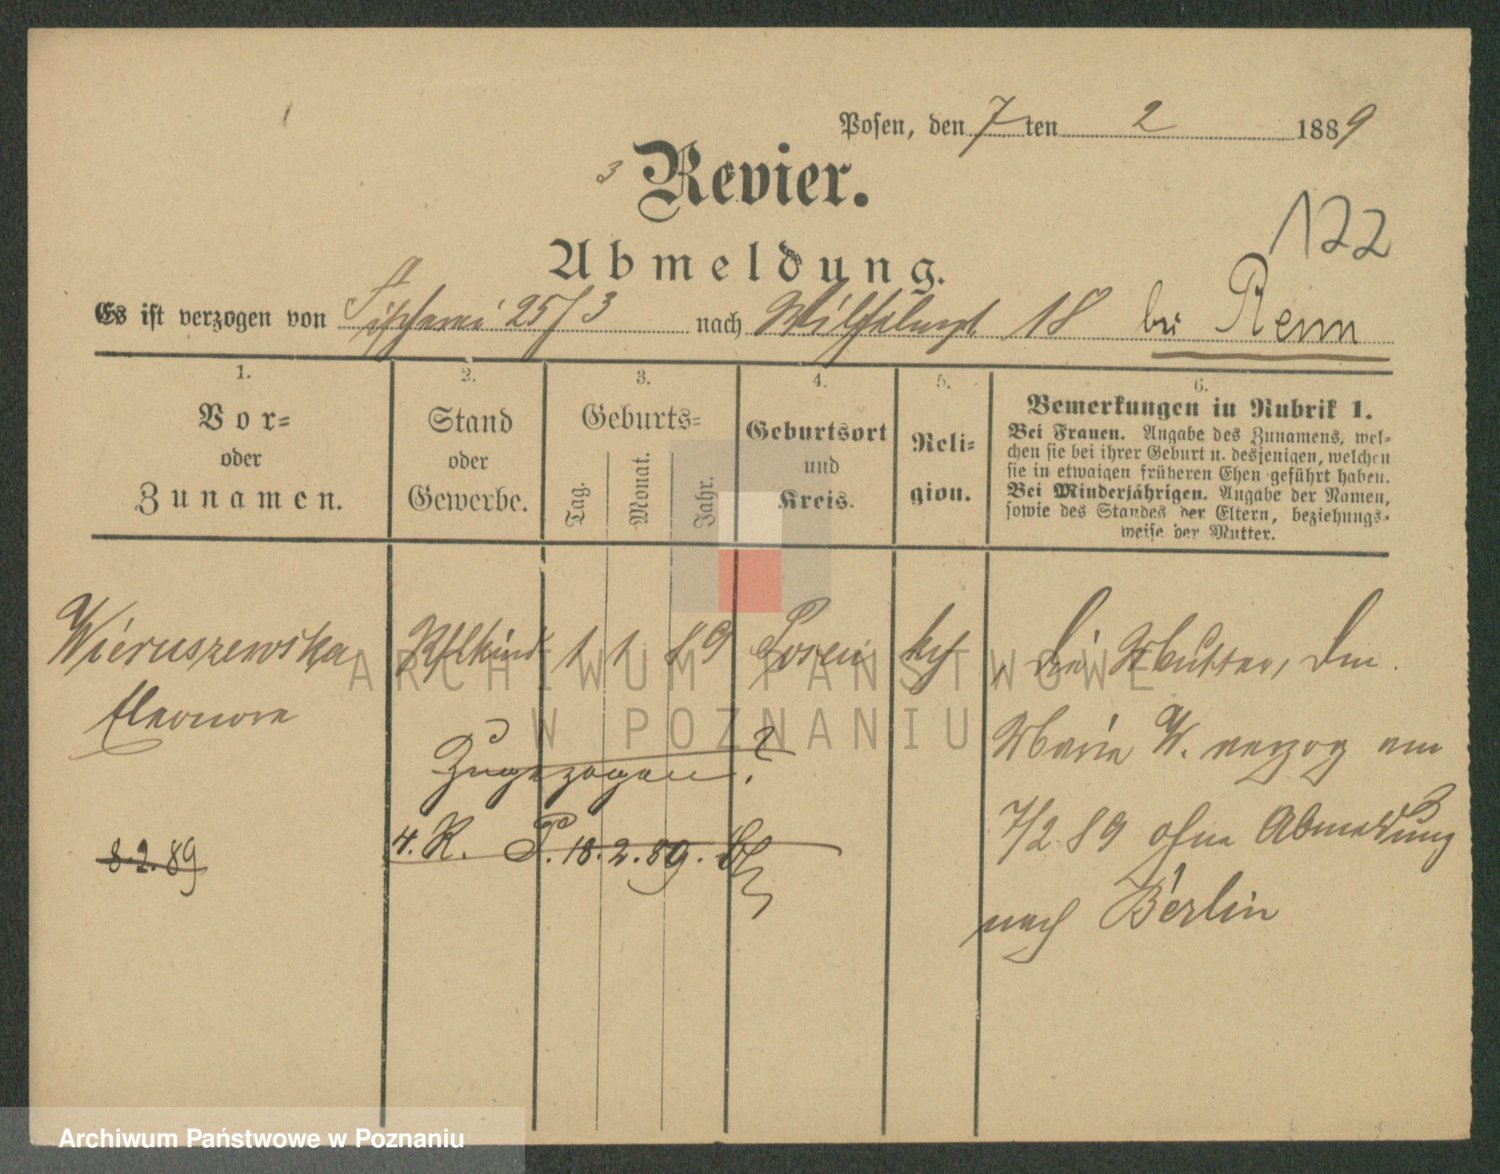 Posen, den 7ten 2 1889
3 Revier.
122
Abmeldung.
Es ist verzogen von Fischerei 25/3 nach 18 bei Renn
1.
Vor-
oder
Zunamen.
2.
Stand
oder
Gewerbe.
3.
Geburts-
Tag.
Monat.
Jahr.
4.
Geburtsort
und
Kreis.
5.
Reli-
gion.
6.
Bemerkungen in Rubrik 1.
Bei Frauen. Angabe des Zunamens, wel-
chen sie bei ihrer Geburt u. desjenigen, welchen
sie in etwaigen früheren Ehen geführt haben.
Bei Minderjährigen. Angabe der Namen,
sowie des Standes der Eltern, beziehungs-
weise der Mutter.
Wieruszewska
Eleonore
8.2.89
1 1 89
Posen
kth
Die Mutter,
Marie W. verzog am
7/2 89 ohne Abmeldung
nach Berlin
Zugezogen?
4. R. P. 18.2.89.
ARCHIWUM PAŃSTWOWE
W POZNANIU
Archiwum Państwowe w Poznaniu